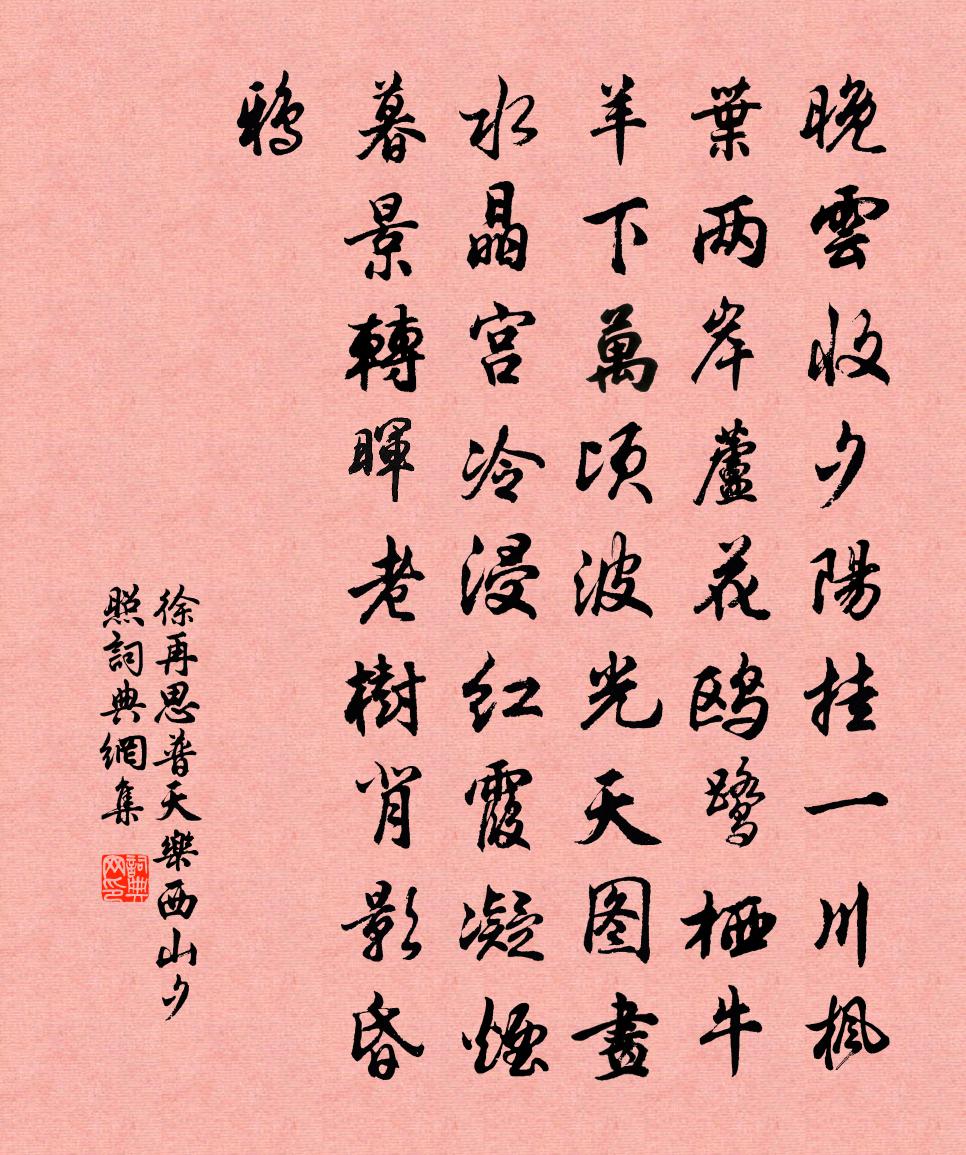 晚雲收夕陽挂一川楓
葉两岸蘆花鸥鹭栖牛
羊下萬顷波光天图畫
水晶宫冷浸红霞凝煙
暮景轉暉老樹背影昏
鴉
徐再思普天樂西山夕
照詞典網集
詞典网印